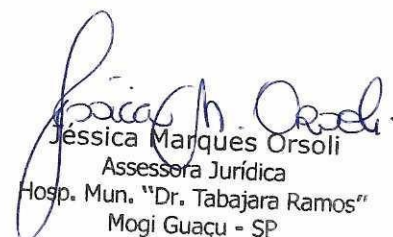 Jéssica M. Orsoli
Jéssica Marques Orsoli
Assessora Jurídica
Hosp. Mun. "Dr. Tabajara Ramos"
Mogi Guaçu - SP